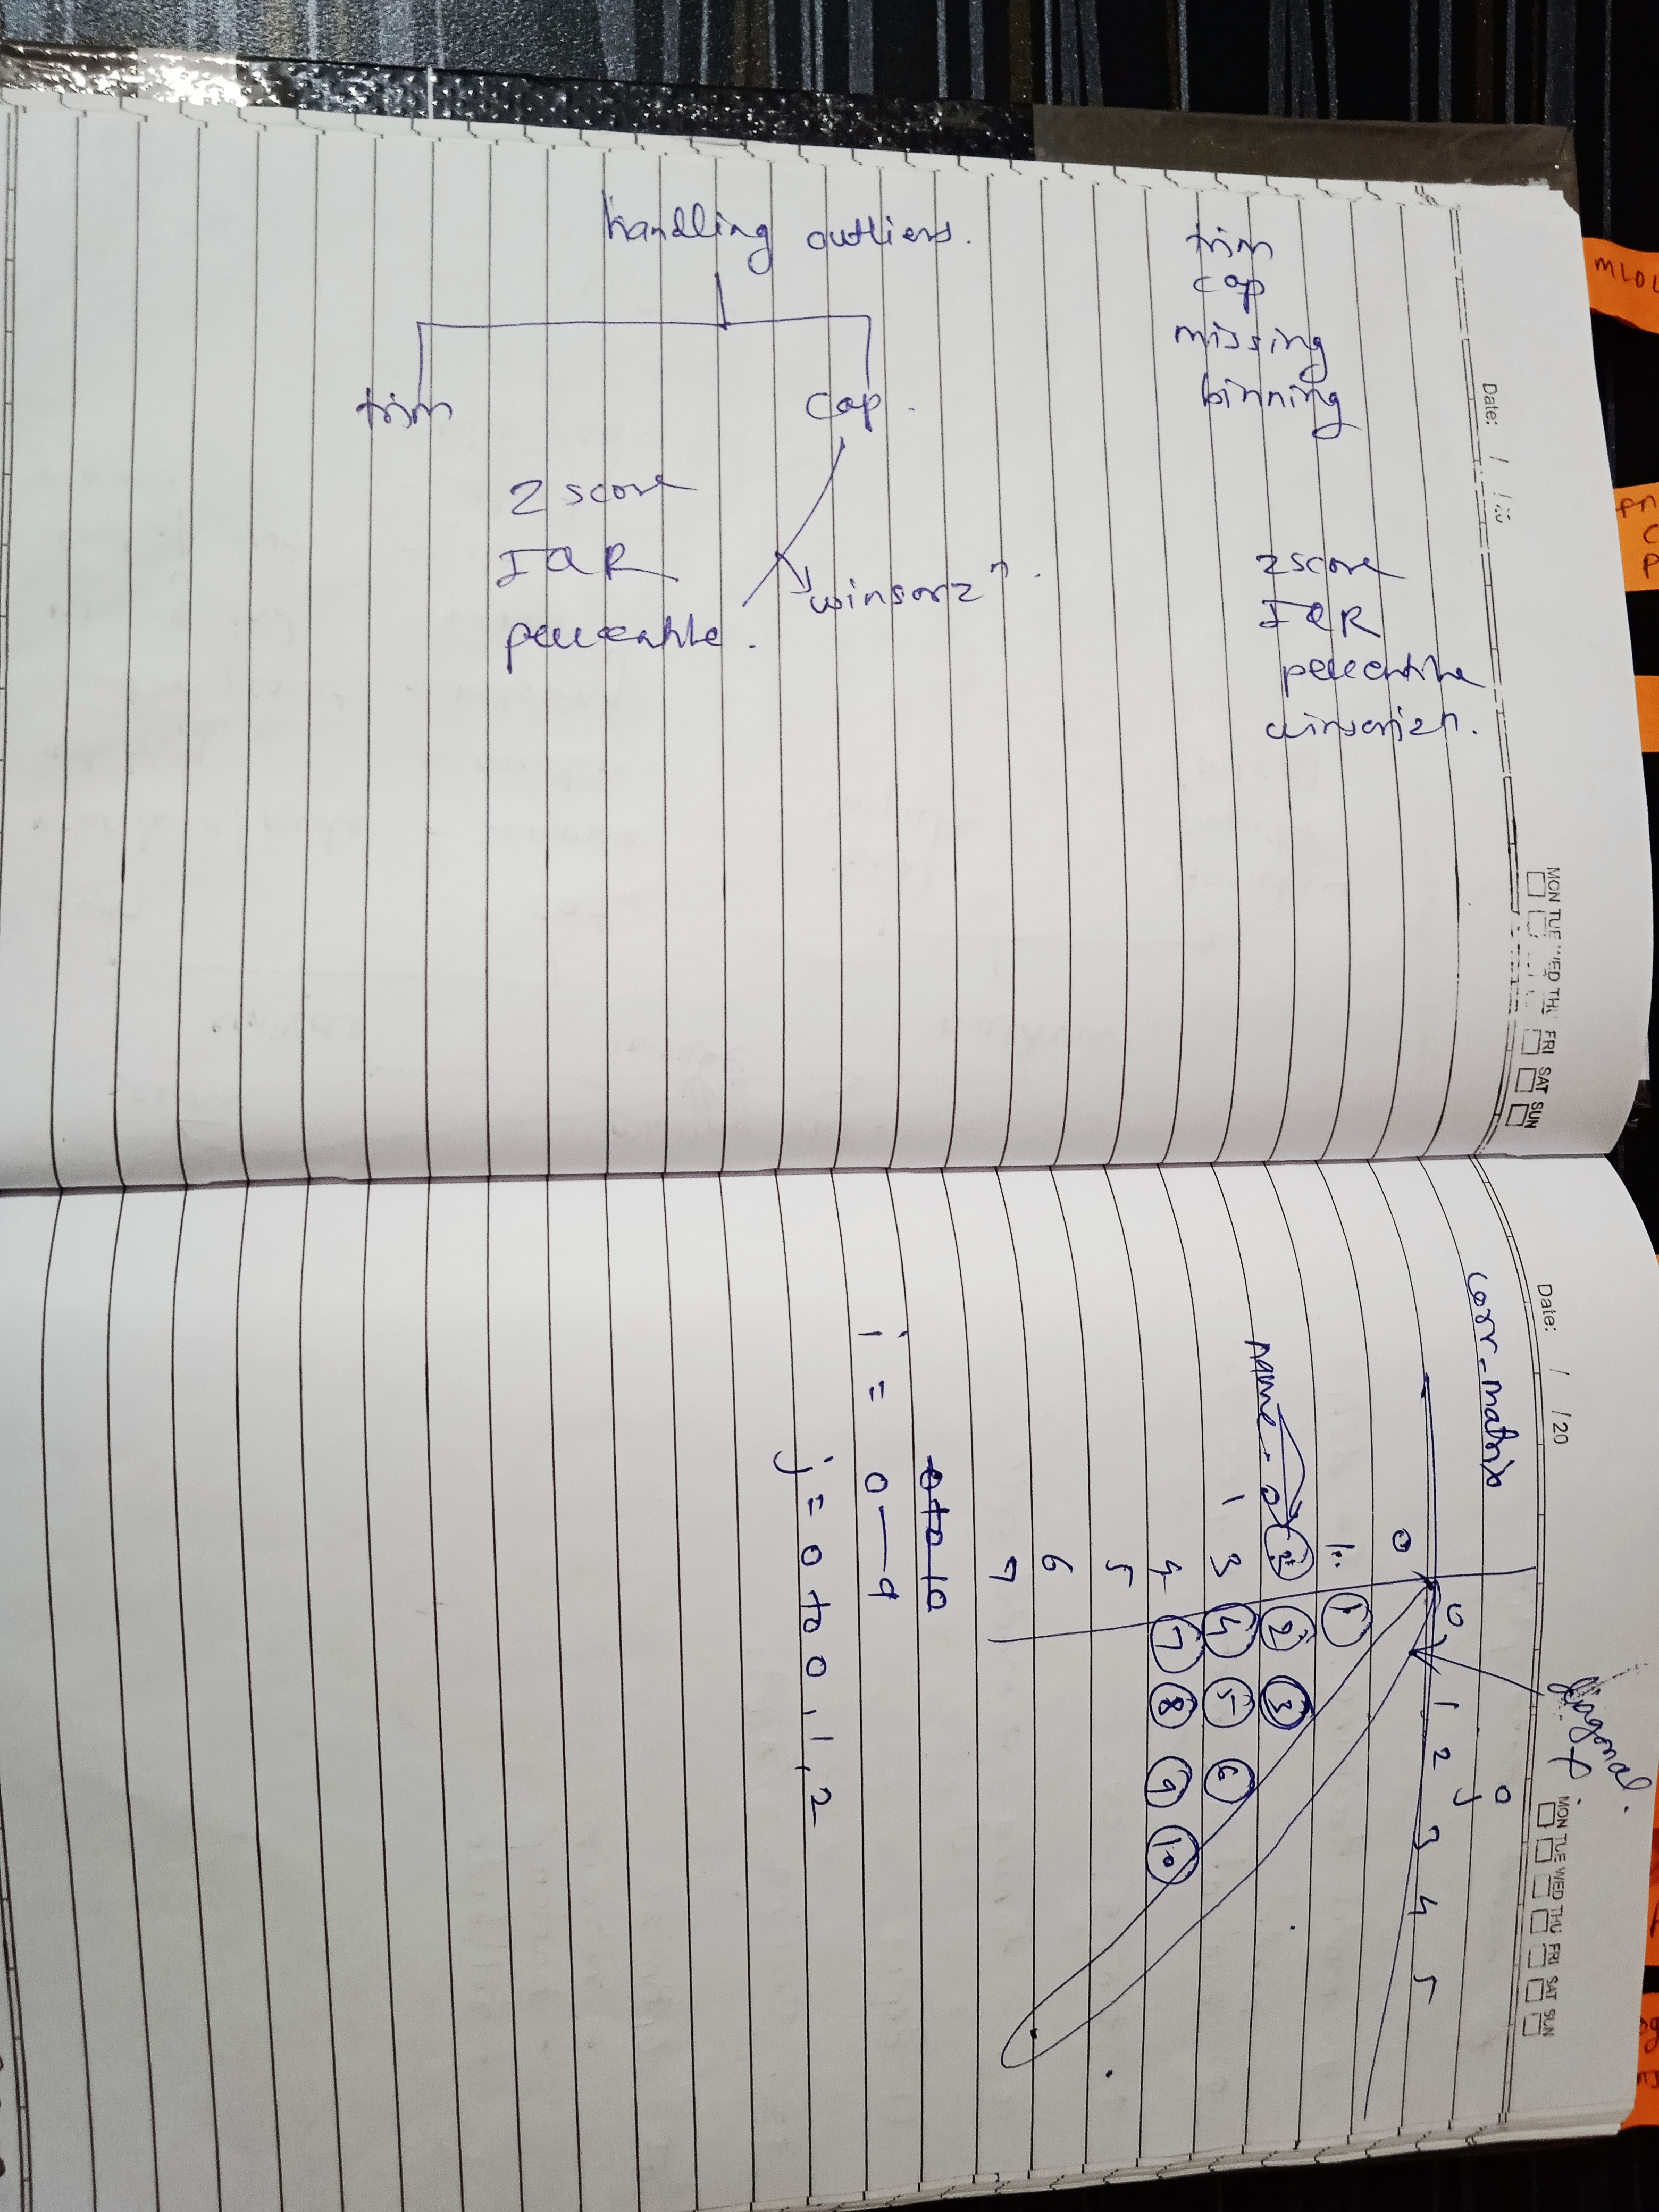 handling outliers.
trim
cap.
Z score
IQR
percentile.
winsorzn.
trim
cap
missing
binning
zscore
IQR
percentile
winsorizn.
Date: / /20
MON TUE WED THU FRI SAT SUN
Date: / /20
MON TUE WED THU FRI SAT SUN
corr-matrix
diagonal.
j 0
0 1 2 3 4 5
0
1 1
2 2 3
3 4 5 6
4 7 8 9 10
5
6
7
name.
0 to 10
i = 0 — 9
j = 0 to 0, 1, 2
MLDL